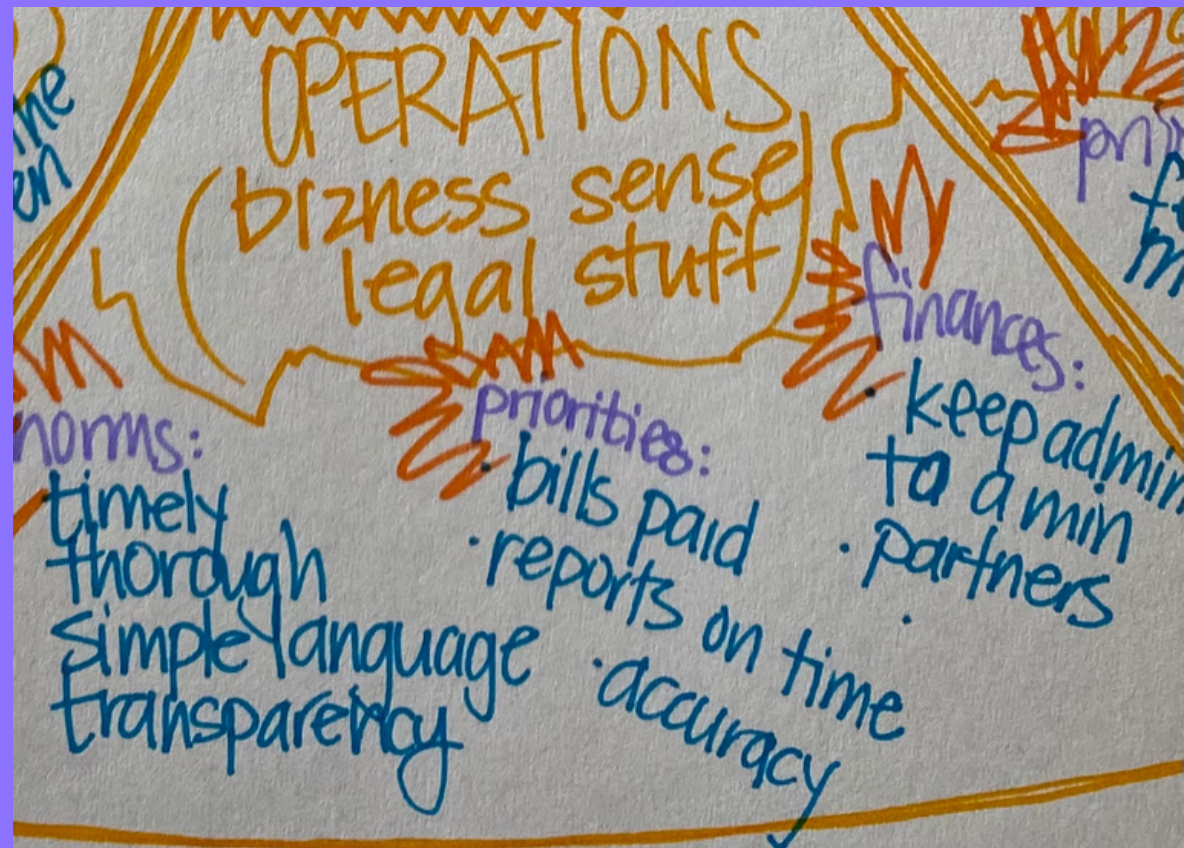 OPERATIONS
(bizness sense
legal stuff)
norms:
timely
thorough
simple language
transparency
priorities:
· bills paid
· reports on time
· accuracy
finances:
· keep admin
to a min
· partners
·